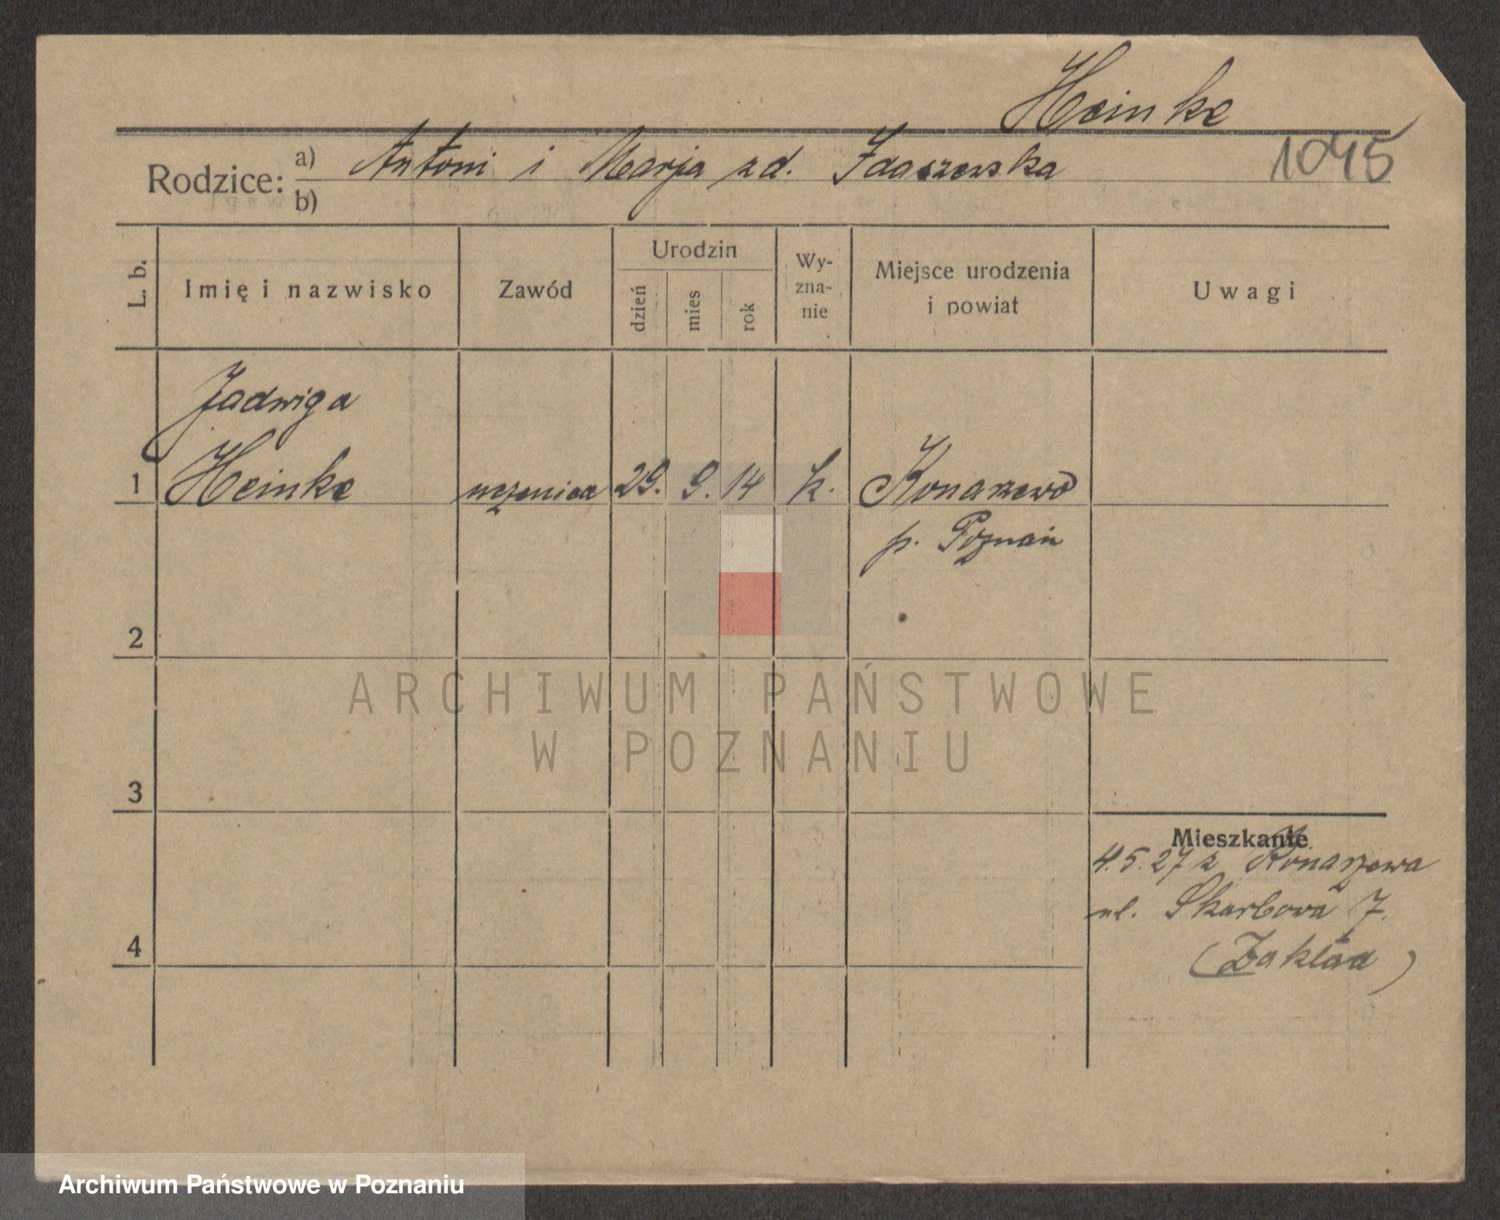 Heinke
Rodzice: a) Antoni i Marja zd. Idaszewska
1045
b)
L. b.
Imię i nazwisko
Zawód
Urodzin
dzień
mies
rok
Wy-
zna-
nie
Miejsce urodzenia
i powiat
Uwagi
Jadwiga
1 Heinke uczenica 29. 9. 14 k. Konarzewo
p. Poznań
2
3
Mieszkanie
4.5.27 z Konarzewa
ul. Skarbowa 7.
(Zakład)
4
ARCHIWUM PAŃSTWOWE
W POZNANIU
Archiwum Państwowe w Poznaniu